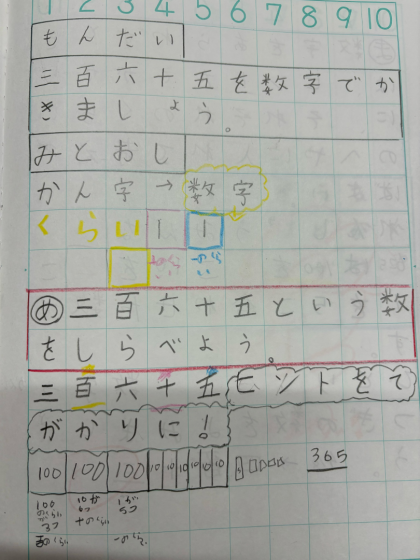 1 2 3 4 5 6 7 8 9 10
もんだい
三百六十五を数字でか
きましょう。
みとおし
かん字→数字
くらい
一のくらい
め 三百六十五という数
をしらべよう。
三百六十五 ヒントをて
がかりに!
100 100 100 10 10 10 10 10 10 365
100のくらい 10が6つ 1が5つ
3つ 十のくらい
百のくらい 一のくらい